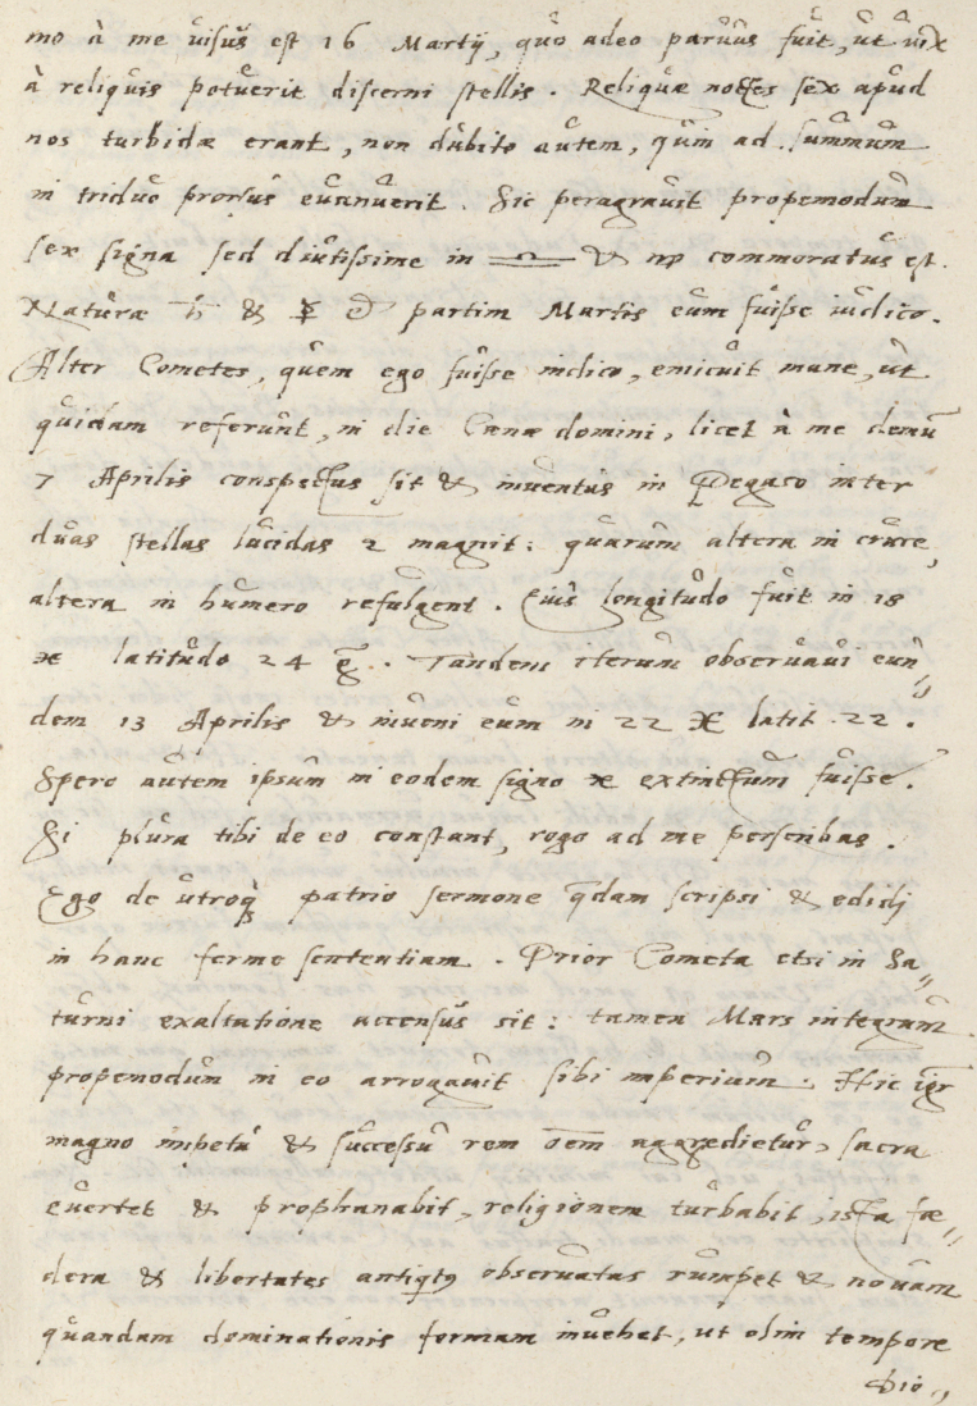 mo à me visus est 16 Martij, quo adeo parvus fuit, ut vix
à reliquis potuerit discerni stellis. Reliquæ noctes sex apud
nos turbidæ erant, non dubito autem, quin ad summum
in triduo prorsus evanuerit. Sic peragravit propemodum
sex signa sed diutissime in ♎ & ♍ commoratus est.
Naturæ ♄ & ☿ partim Martis eum fuisse iudico.
Alter Cometes, quem ego fuisse iudico, emicuit mane, ut
quidam referunt, in die Cænæ domini, licet à me demū
7 Aprilis conspectus sit & inventus in Pegaso inter
duas stellas lucidas 2 magnit: quarum altera in crure,
altera in humero refulgent. Eius longitudo fuit in 18
♓ latitudo 24 g̃. Tandem iterum observavi eun„
dem 13 Aprilis & inveni eum in 22 ♓ latit. 22.
Spero autem ipsum in eodem signo ♓ extinctum fuisse.
Si plura tibi de eo constant, rogo ad me perscribas.
Ego de utroq̀ꝫ patrio sermone q̃dam scripsi & edidj
in hanc ferme sententiam. Prior Cometa etsi in Sa„
turni exaltatione accensus sit: tamen Mars integrum
propemodum in eo arrogavit sibi imperium. Hic igr̄
magno impetu & successu rem oēm aggredietur, sacra
evertet & prophanabit, religionem turbabit, ista fœ„
dera & libertates antiqꝫtꝰ observatas rumpet & novam
quandam dominationis formam invehet, ut olim tempore
Dio„